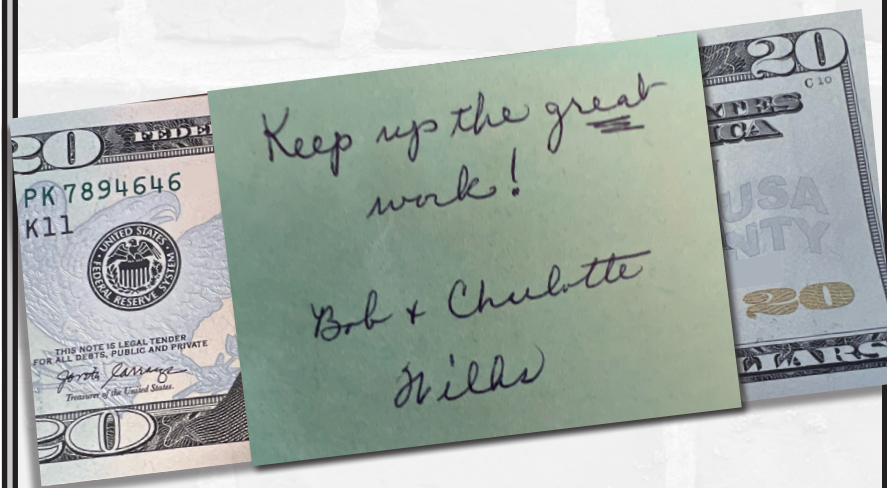 20
FEDER
PK 7894646
K11
UNITED STATES
FEDERAL RESERVE SYSTEM
THIS NOTE IS LEGAL TENDER
FOR ALL DEBTS, PUBLIC AND PRIVATE
Treasurer of the United States.
20
Keep up the great
work!
Bob & Charlotte
20
C 10
TES
ICA
USA
NTY
20
LARS